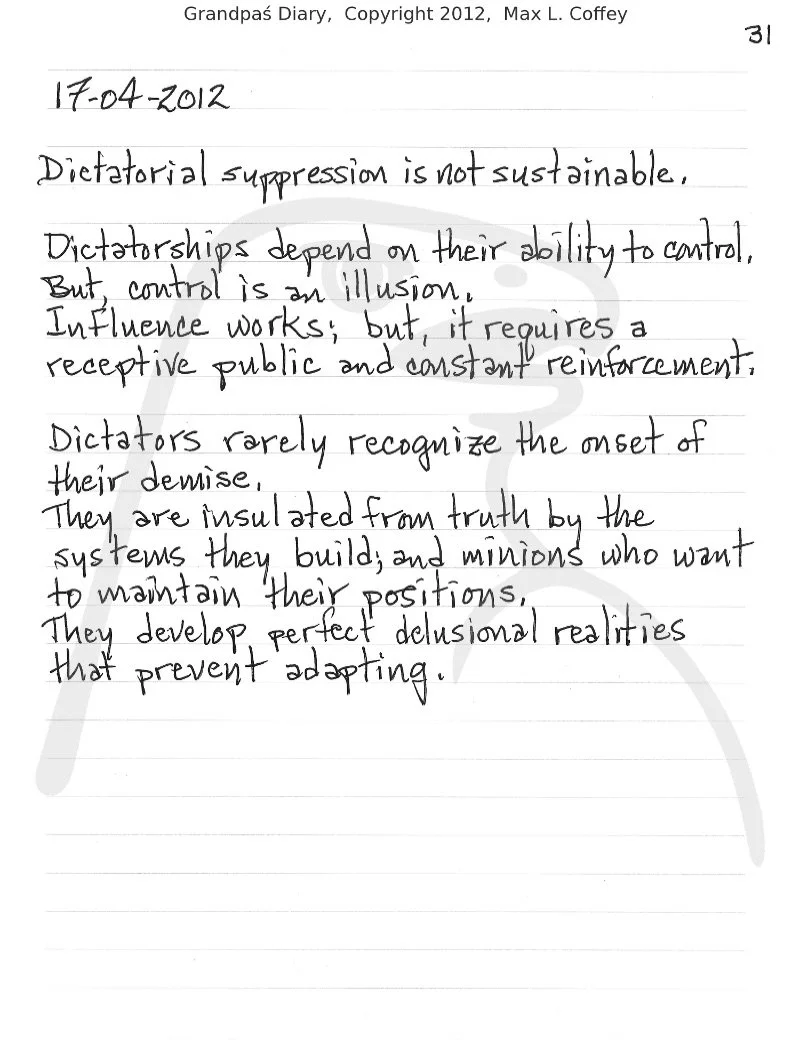 Grandpaś Diary, Copyright 2012, Max L. Coffey
31
17-04-2012
Dictatorial suppression is not sustainable.
Dictatorships depend on their ability to control.
But, control is an illusion.
Influence works; but, it requires a
receptive public and constant reinforcement.
Dictators rarely recognize the onset of
their demise.
They are insulated from truth by the
systems they build; and minions who want
to maintain their positions.
They develop perfect delusional realities
that prevent adapting.